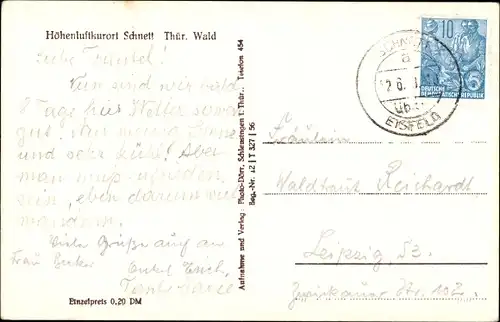 Höhenluftkurort Schnett Thür. Wald
Nun sind wir bald
8 Tage hier Wetter
gut.
und sehr kühl! Aber
man muß zufrieden
sein, eben darum viel
wandern.
Viele Grüße auch an
Frau
Onkel Erich,
Tante
Einzelpreis 0,20 DM
Aufnahme und Verlag: Photo-Dörr, Schleusingen i. Thür., Telefon 454
Reg.-Nr. 12 | T 327 | 56
10
DEUTSCHE
DEMOKRATISCHE REPUBLIK
SCHNETT
a
üb.
EISFELD
Fräulein
Waldtraut Reichardt
Leipzig S3.
Zwickauer Str. 102.